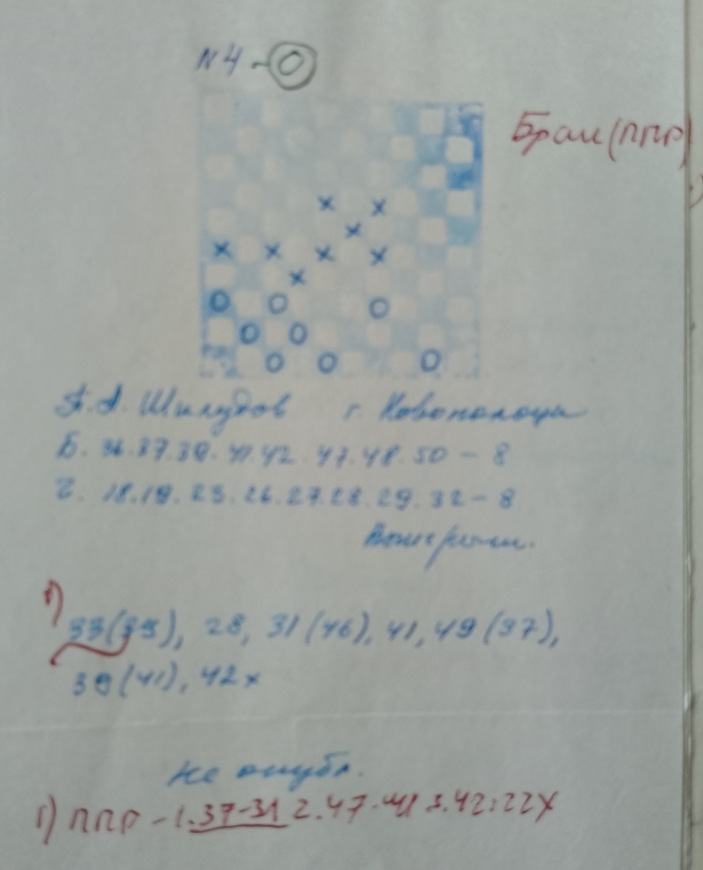 N4 - O
Брак (ППР)
А. Шилудов г. Новополоцк
Б. 36.37.39.41.42.47.48.50 - 8
Ч. 18.19.23.26.27.28.29.32 - 8
Выигрыш.
1) 33(35), 28, 31(46), 41, 49(37),
39(41), 42x
Не опубл.
1) ППР - 1.37-31 2.47-41 3.42:22X